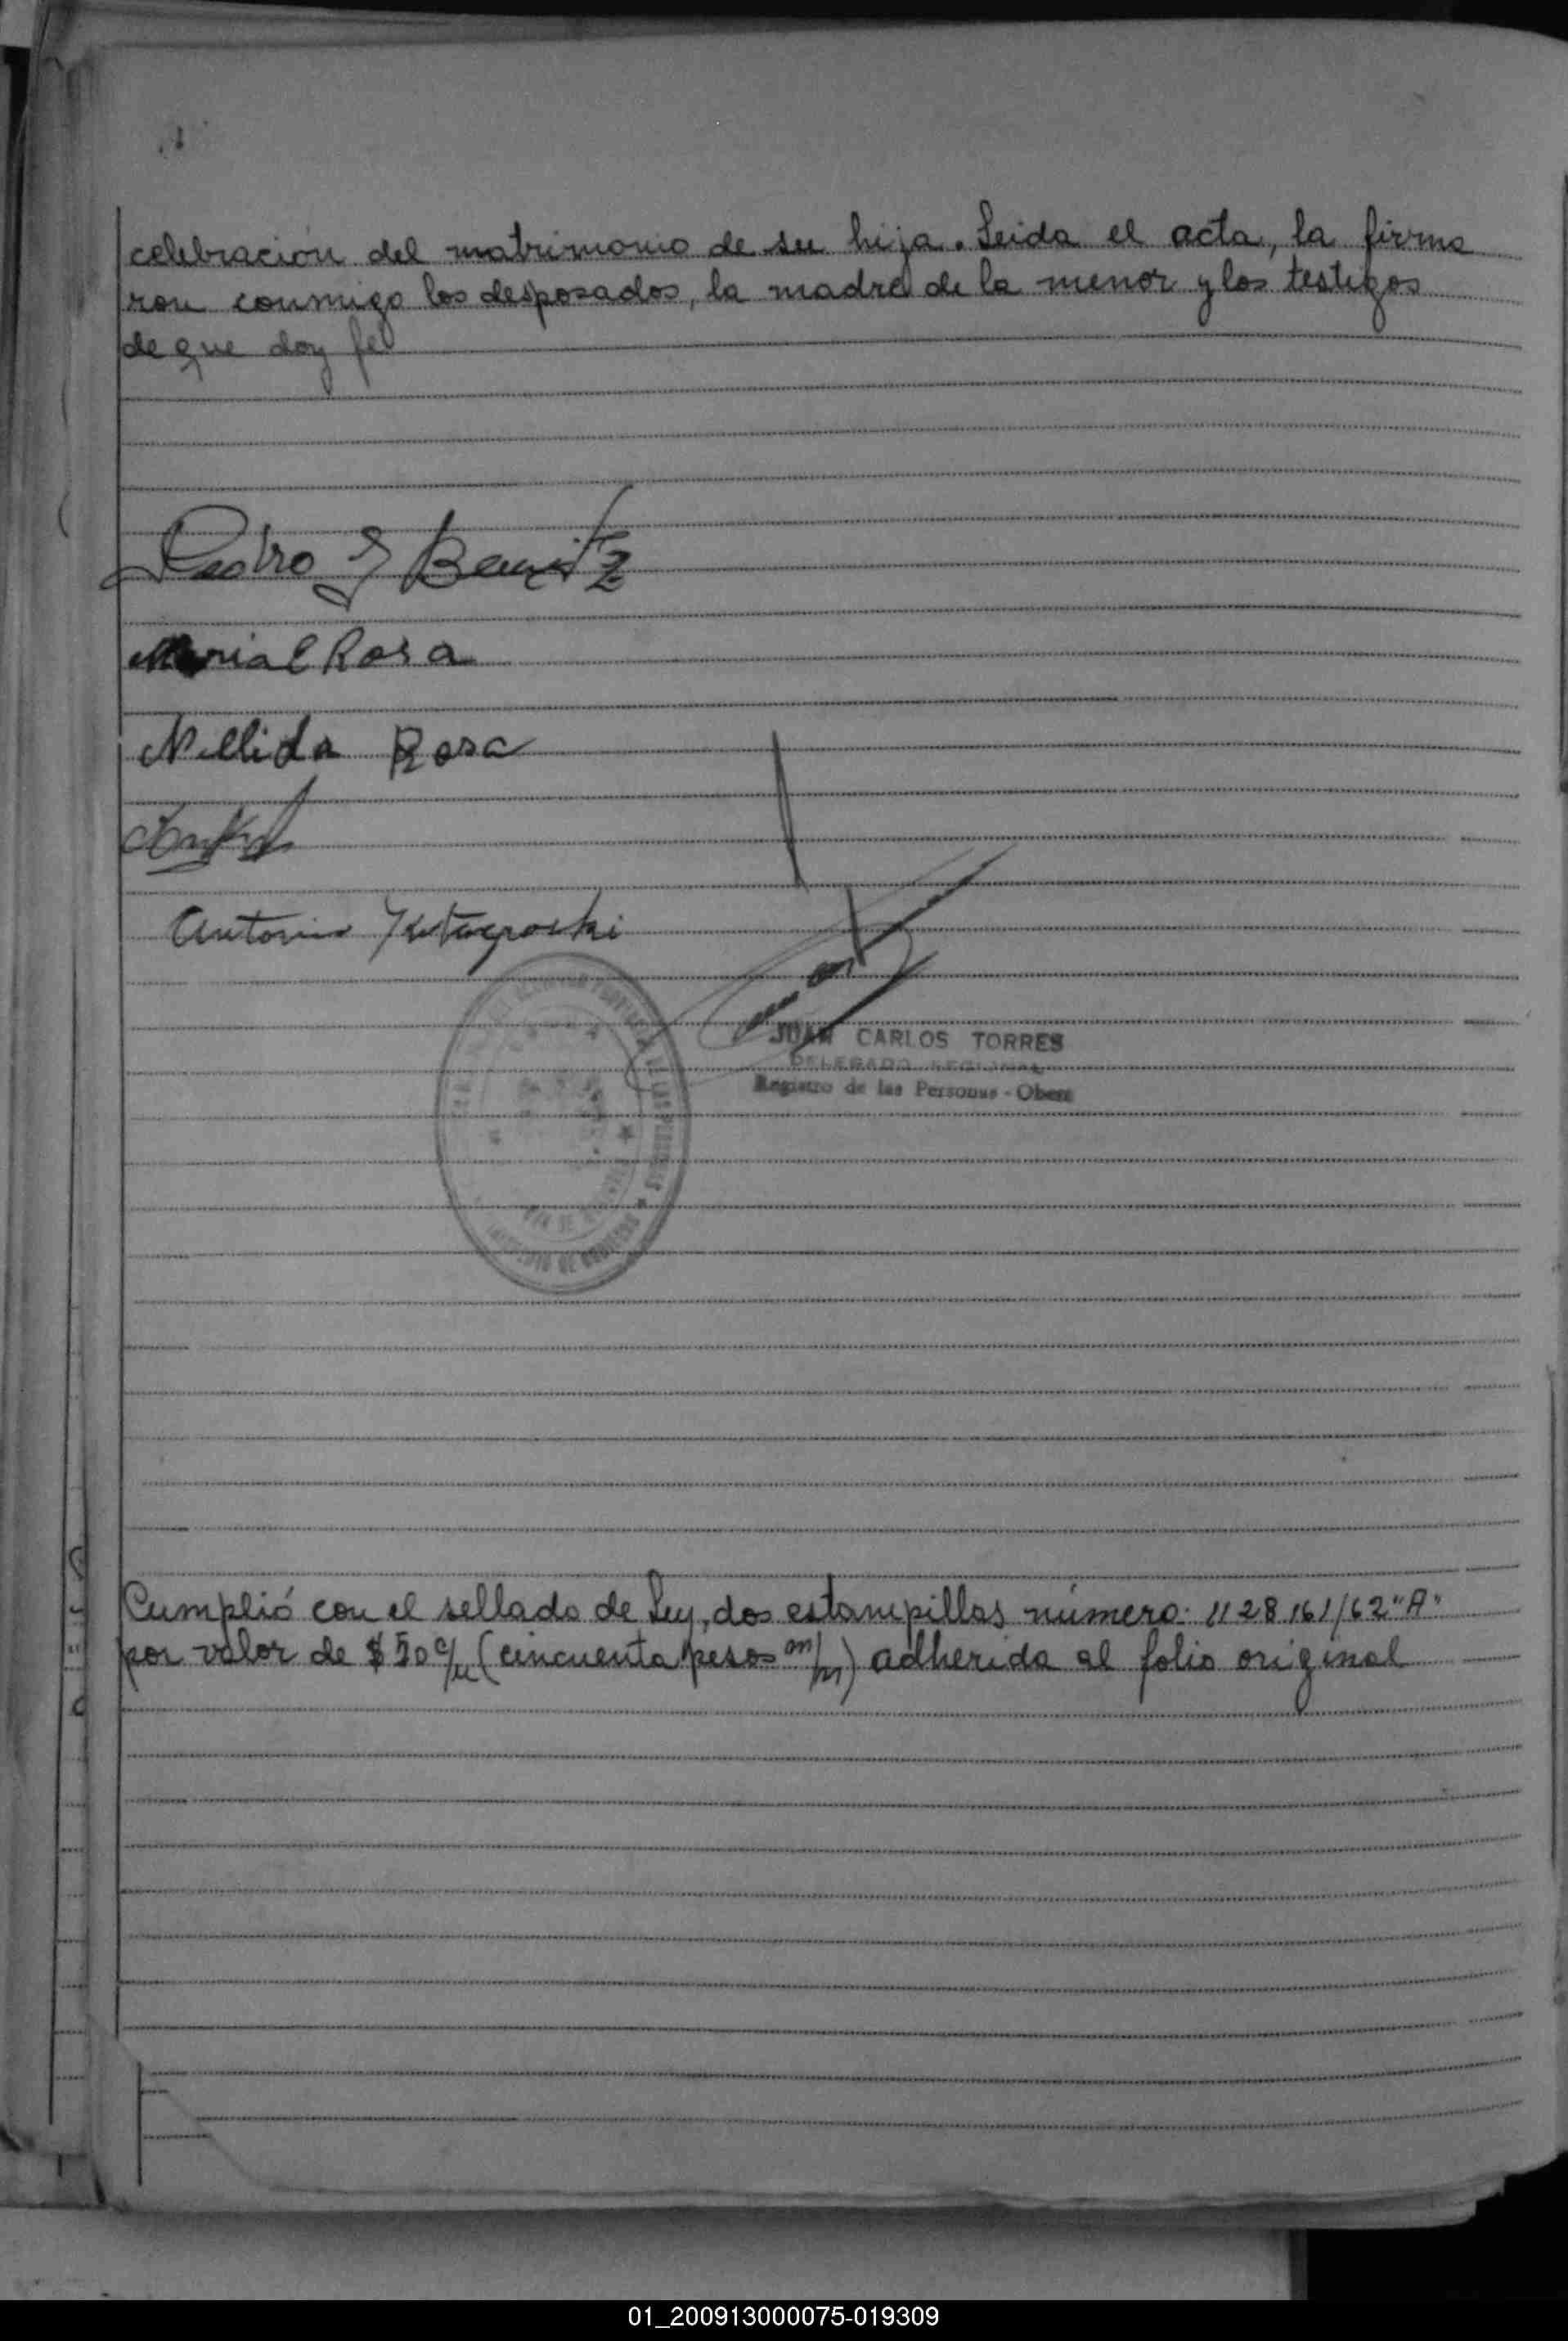 celebración del matrimonio de su hija. Leida el acta, la firma
ron conmigo los desposados, la madre de la menor y los testigos
de que doy fe
Pedro E Benitz
Maria E Rosa
Nellida Rosa
Antonio
JUAN CARLOS TORRES
DELEGADO REGIONAL
Registro de las Personas - Obera
Cumplió con el sellado de Ley, dos estampillas número: 1128161/62 "A"
por valor de $50 c/u (cincuenta pesos m/n) adherida al folio original
01_200913000075-019309